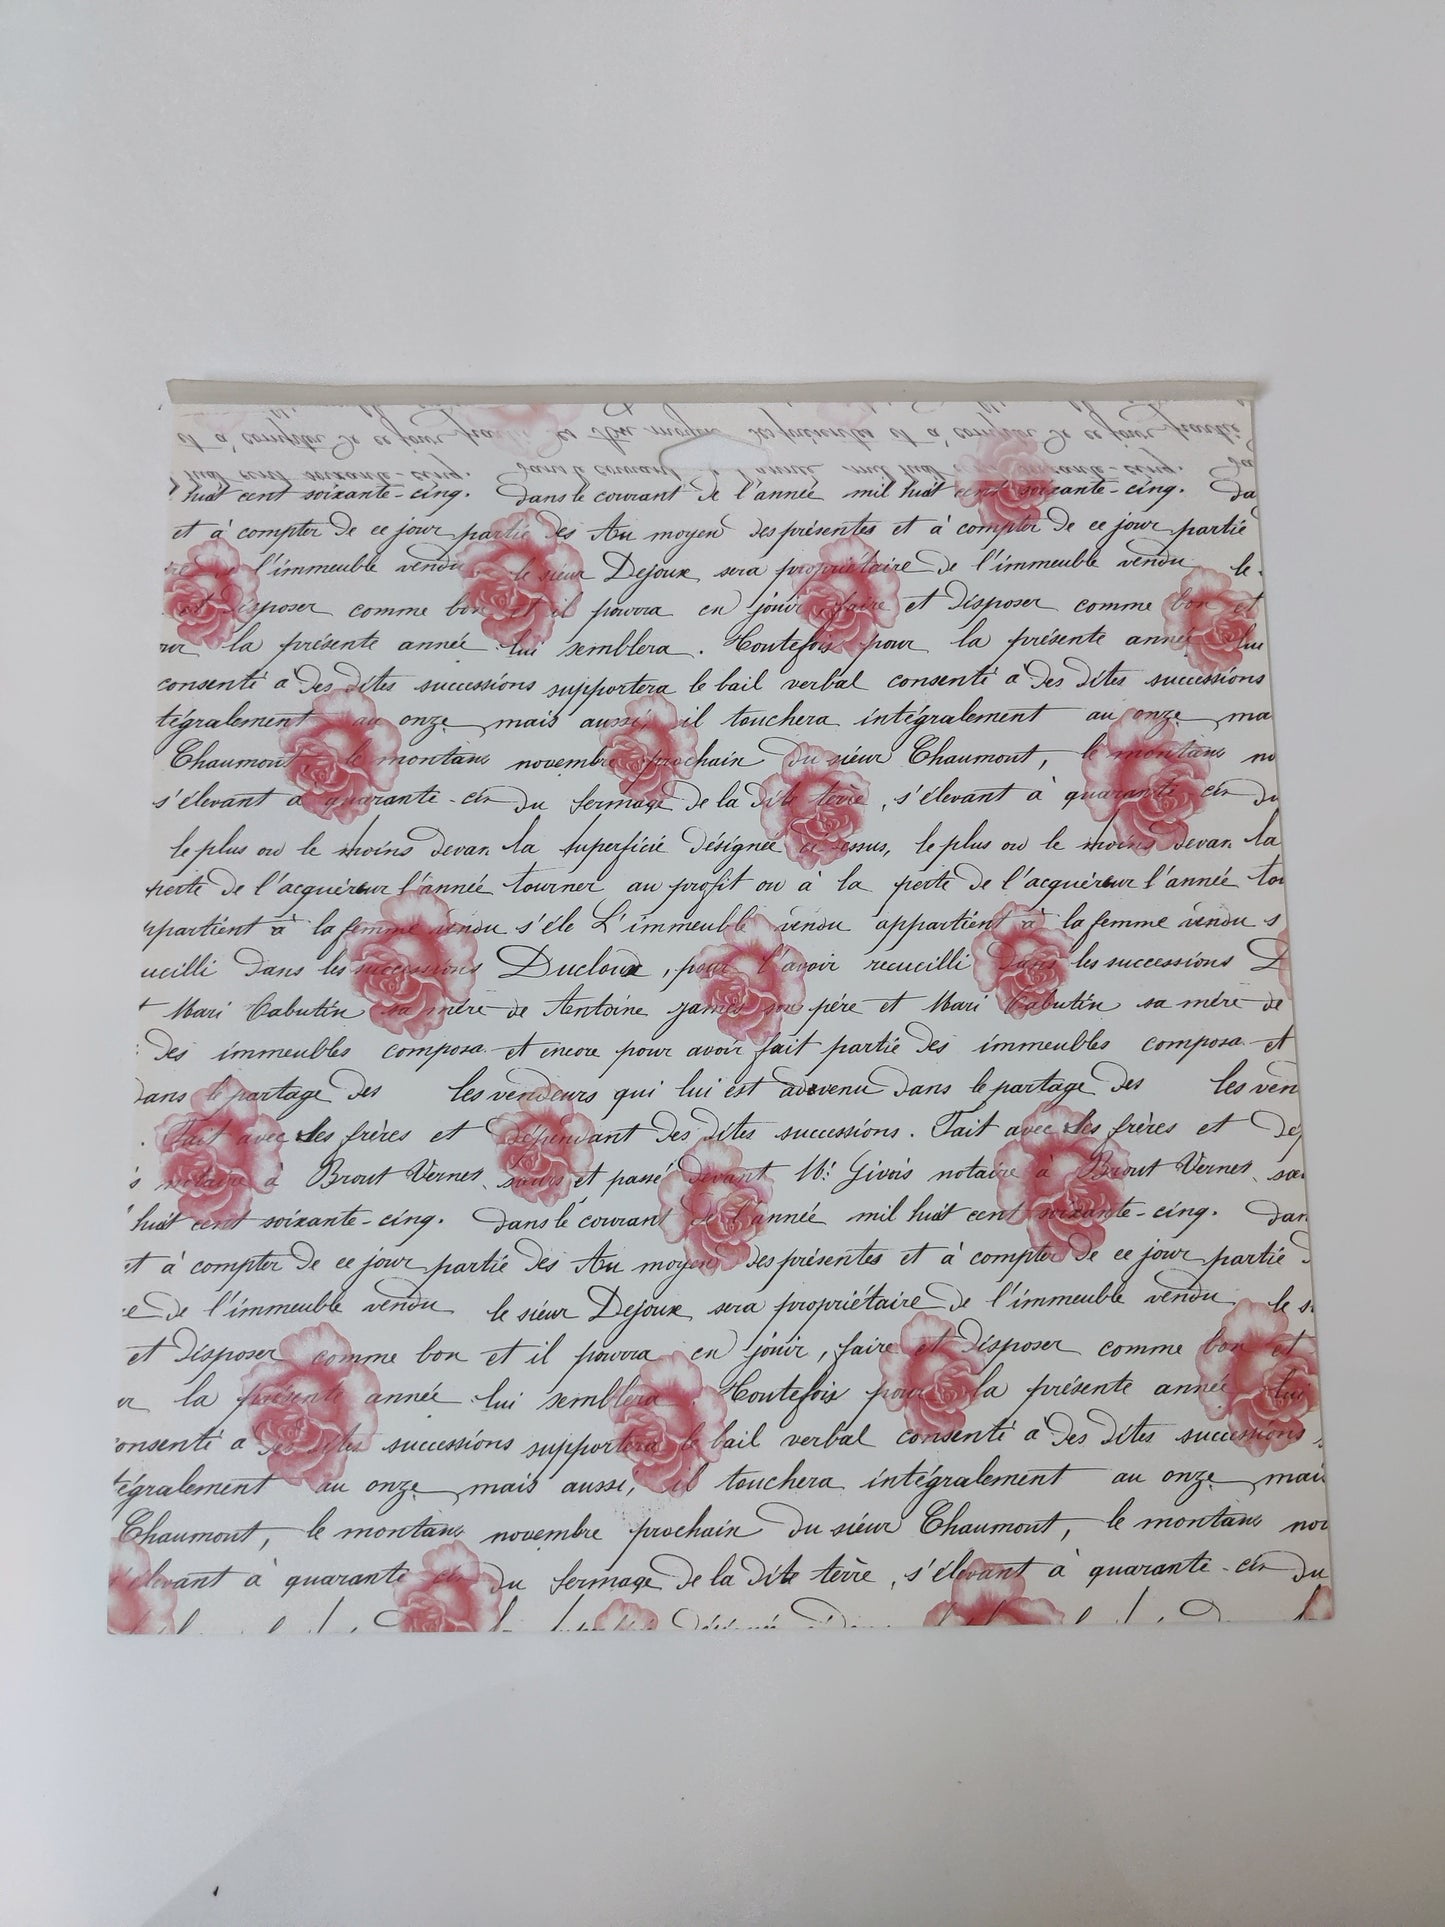 et à compter de ce jour partie des Au moyen des présentes et à compter de ce jour partie
huit cent soixante-cinq. dans le courant de l'année mil huit cent soixante-cinq. da
huit cent soixante-cinq. Dans le courant de l'année mil huit cent soixante-cinq. Da
et à compter de ce jour partie des Au moyen des présentes et à compter de ce jour partie
re de l'immeuble vendu le sieur Dejoux sera propriétaire de l'immeuble vendu le
et disposer comme bon et il pourra en jouir faire et disposer comme bon et
our la présente année lui semblera. Toutefois pour la présente année lui
consenti a des dites successions supportera le bail verbal consenti a des dites successions
tégralement au onze mais aussi, il touchera intégralement au onze ma
Chaumont, le montans novembre prochain du sieur Chaumont, le montans no
s'élevant à quarante-cin du fermage de la dite terre, s'élevant à quarante-cin du
le plus ou le moins devan la superficié désignée ci essus, le plus ou le moins devan la
perte de l'acquéreur l'année tourner au profit ou à la perte de l'acquéreur l'année tou
ppartient à la femme vendu s'éle L'immeuble vendu appartient à la femme vendu s
ueilli dans les successions Ducloux, pour l'avoir recueilli dans les successions D
t Mari Cabutin sa mère de Antoine James son père et Mari Cabutin sa mère de
des immeubles composa et encore pour avoir fait partie des immeubles composa et
dans le partage des les vendeurs qui lui est advenu dans le partage des les ven
. Fait avec les frères et dépendant des dites successions. Fait avec les frères et dé
s notaire à Brout Vernes. sœurs et passé devant Me Givois notaire à Brout Vernes. sœu
huit cent soixante-cinq. dans le courant de l'année mil huit cent soixante-cinq. dan
et à compter de ce jour partie des Au moyen des présentes et à compter de ce jour partie d
re de l'immeuble vendu le sieur Dejoux sera propriétaire de l'immeuble vendu le si
et disposer comme bon et il pourra en jouir, faire et disposer comme bon et
ur la présente année lui semblera Toutefois pour la présente année lui
onsenti a des dites successions supportera le bail verbal consenti a des dites successions s
tégralement au onze mais aussi, il touchera intégralement au onze mai
Chaumont, le montans novembre prochain du sieur Chaumont, le montans nov
s'élevant à quarante-cin du fermage de la dite terre, s'élevant à quarante-cin du